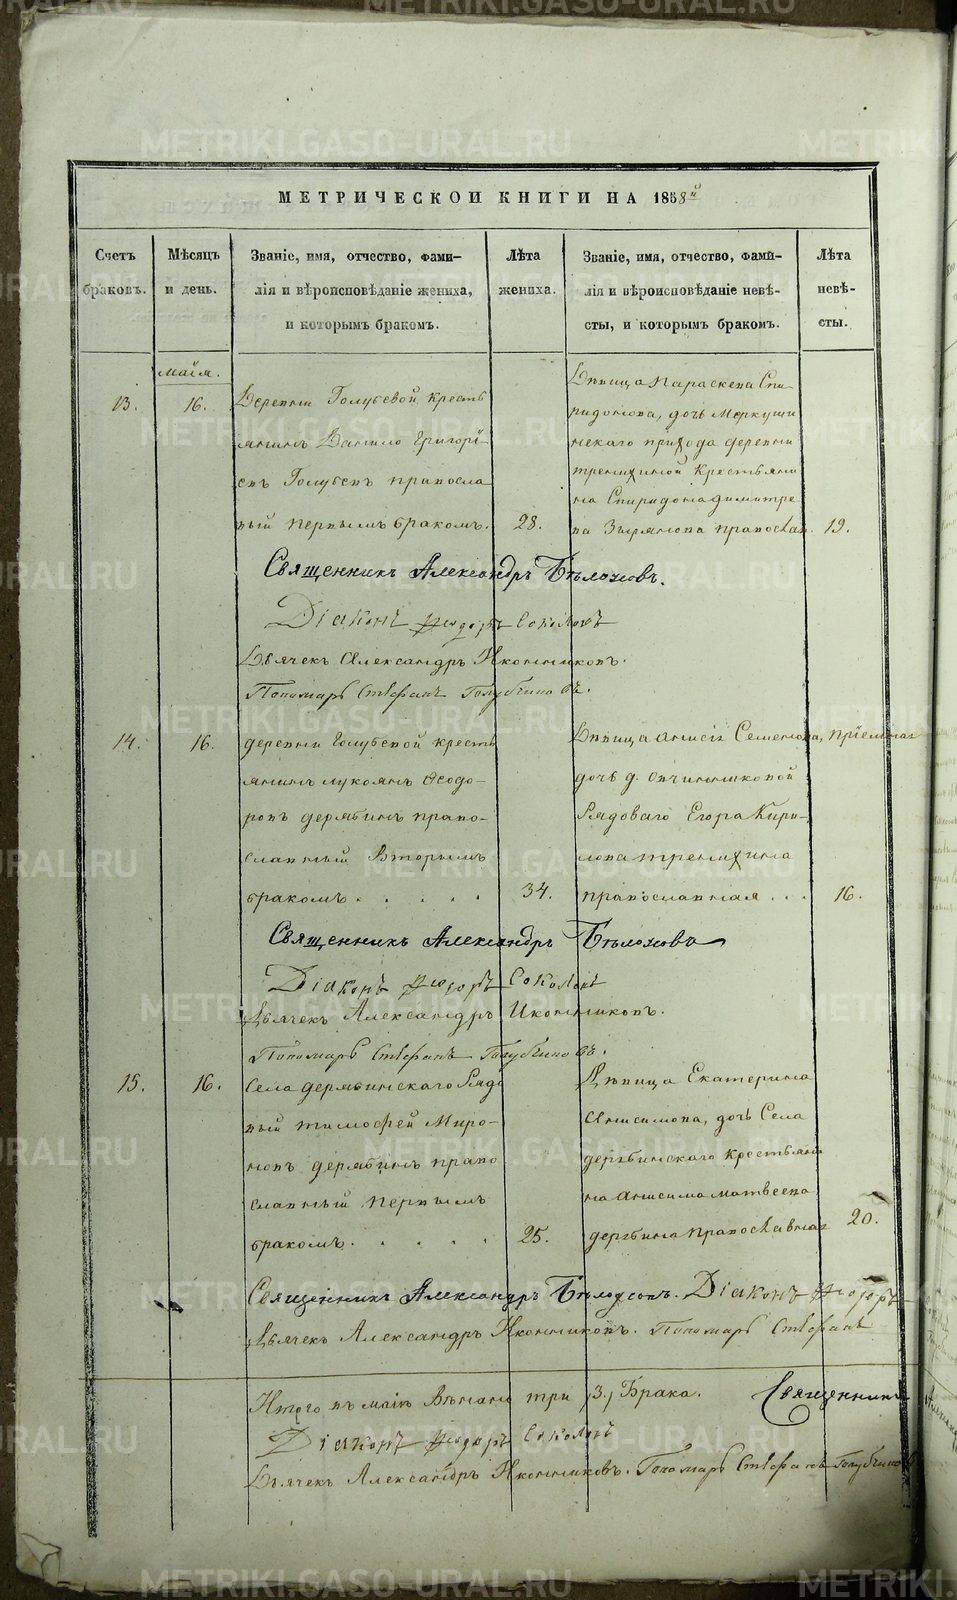 МЕТРИЧЕСКОЙ КНИГИ НА 1858й
Счетъ браковъ.
Мѣсяцъ и день.
Званіе, имя, отчество, фами-
лія и вѣроисповѣданіе жениха,
и которымъ бракомъ.
Лѣта жениха.
Званіе, имя, отчество, фами-
лія и вѣроисповѣданіе невѣ-
сты, и которымъ бракомъ.
Лѣта невѣ-
сты.
маія.
13.
16.
Деревни Голубевой кресть
янинъ Данило Григорі-
евъ Голубевъ правосла
вный первымъ бракомъ.
28.
Дѣвица Параскева Спи-
ридонова, дочь Меркуши
нскаго прихода деревни
тренихиной Крестьяни
на Спиридона димитре
ва Зырянова православ.
19.
Священникъ Александръ Бѣлоусовъ.
Діаконъ Ѳеодоръ Соколовъ
Дьячекъ Александръ Иконниковъ.
Пономарь Стефанъ Голубчиковъ.
14.
16.
деревни Голубевой кресть
янинъ лукоянъ Ѳеодо-
ровъ дерябинъ право-
славный Вторымъ
бракомъ . . . . .
34.
Дѣвица анисія Семенова, пріемная
дочь д. Овчинниковой
Рядоваго Егора Кири-
лова тренихина
православная . . .
16.
Священникъ Александръ Бѣлоусовъ
Діаконъ Ѳеодоръ Соколовъ
Дьячекъ Александръ Иконниковъ.
Пономарь Стефанъ Голубчиковъ.
15.
16.
Села дерябинскаго Рядо
вый тимофей Миро-
новъ дерябинъ право
славный первымъ
бракомъ. . . . .
25.
Дѣвица Екатерина
Анисимова, дочь Села
дерябинскаго крестьяни
на анисима матвеева
дерябина православная
20.
Священникъ Александръ Бѣлоусовъ. Діаконъ Ѳеодоръ
Дьячекъ Александръ Иконниковъ. Пономарь Стефанъ
Итого въ маіѣ Вѣнчано три /3./ Брака. Священникъ
Діаконъ Ѳеодоръ Соколовъ
Дьячекъ Александръ Иконниковъ. Пономарь Стефанъ Голубчиковъ
METRIKI.GASO-URAL.RU